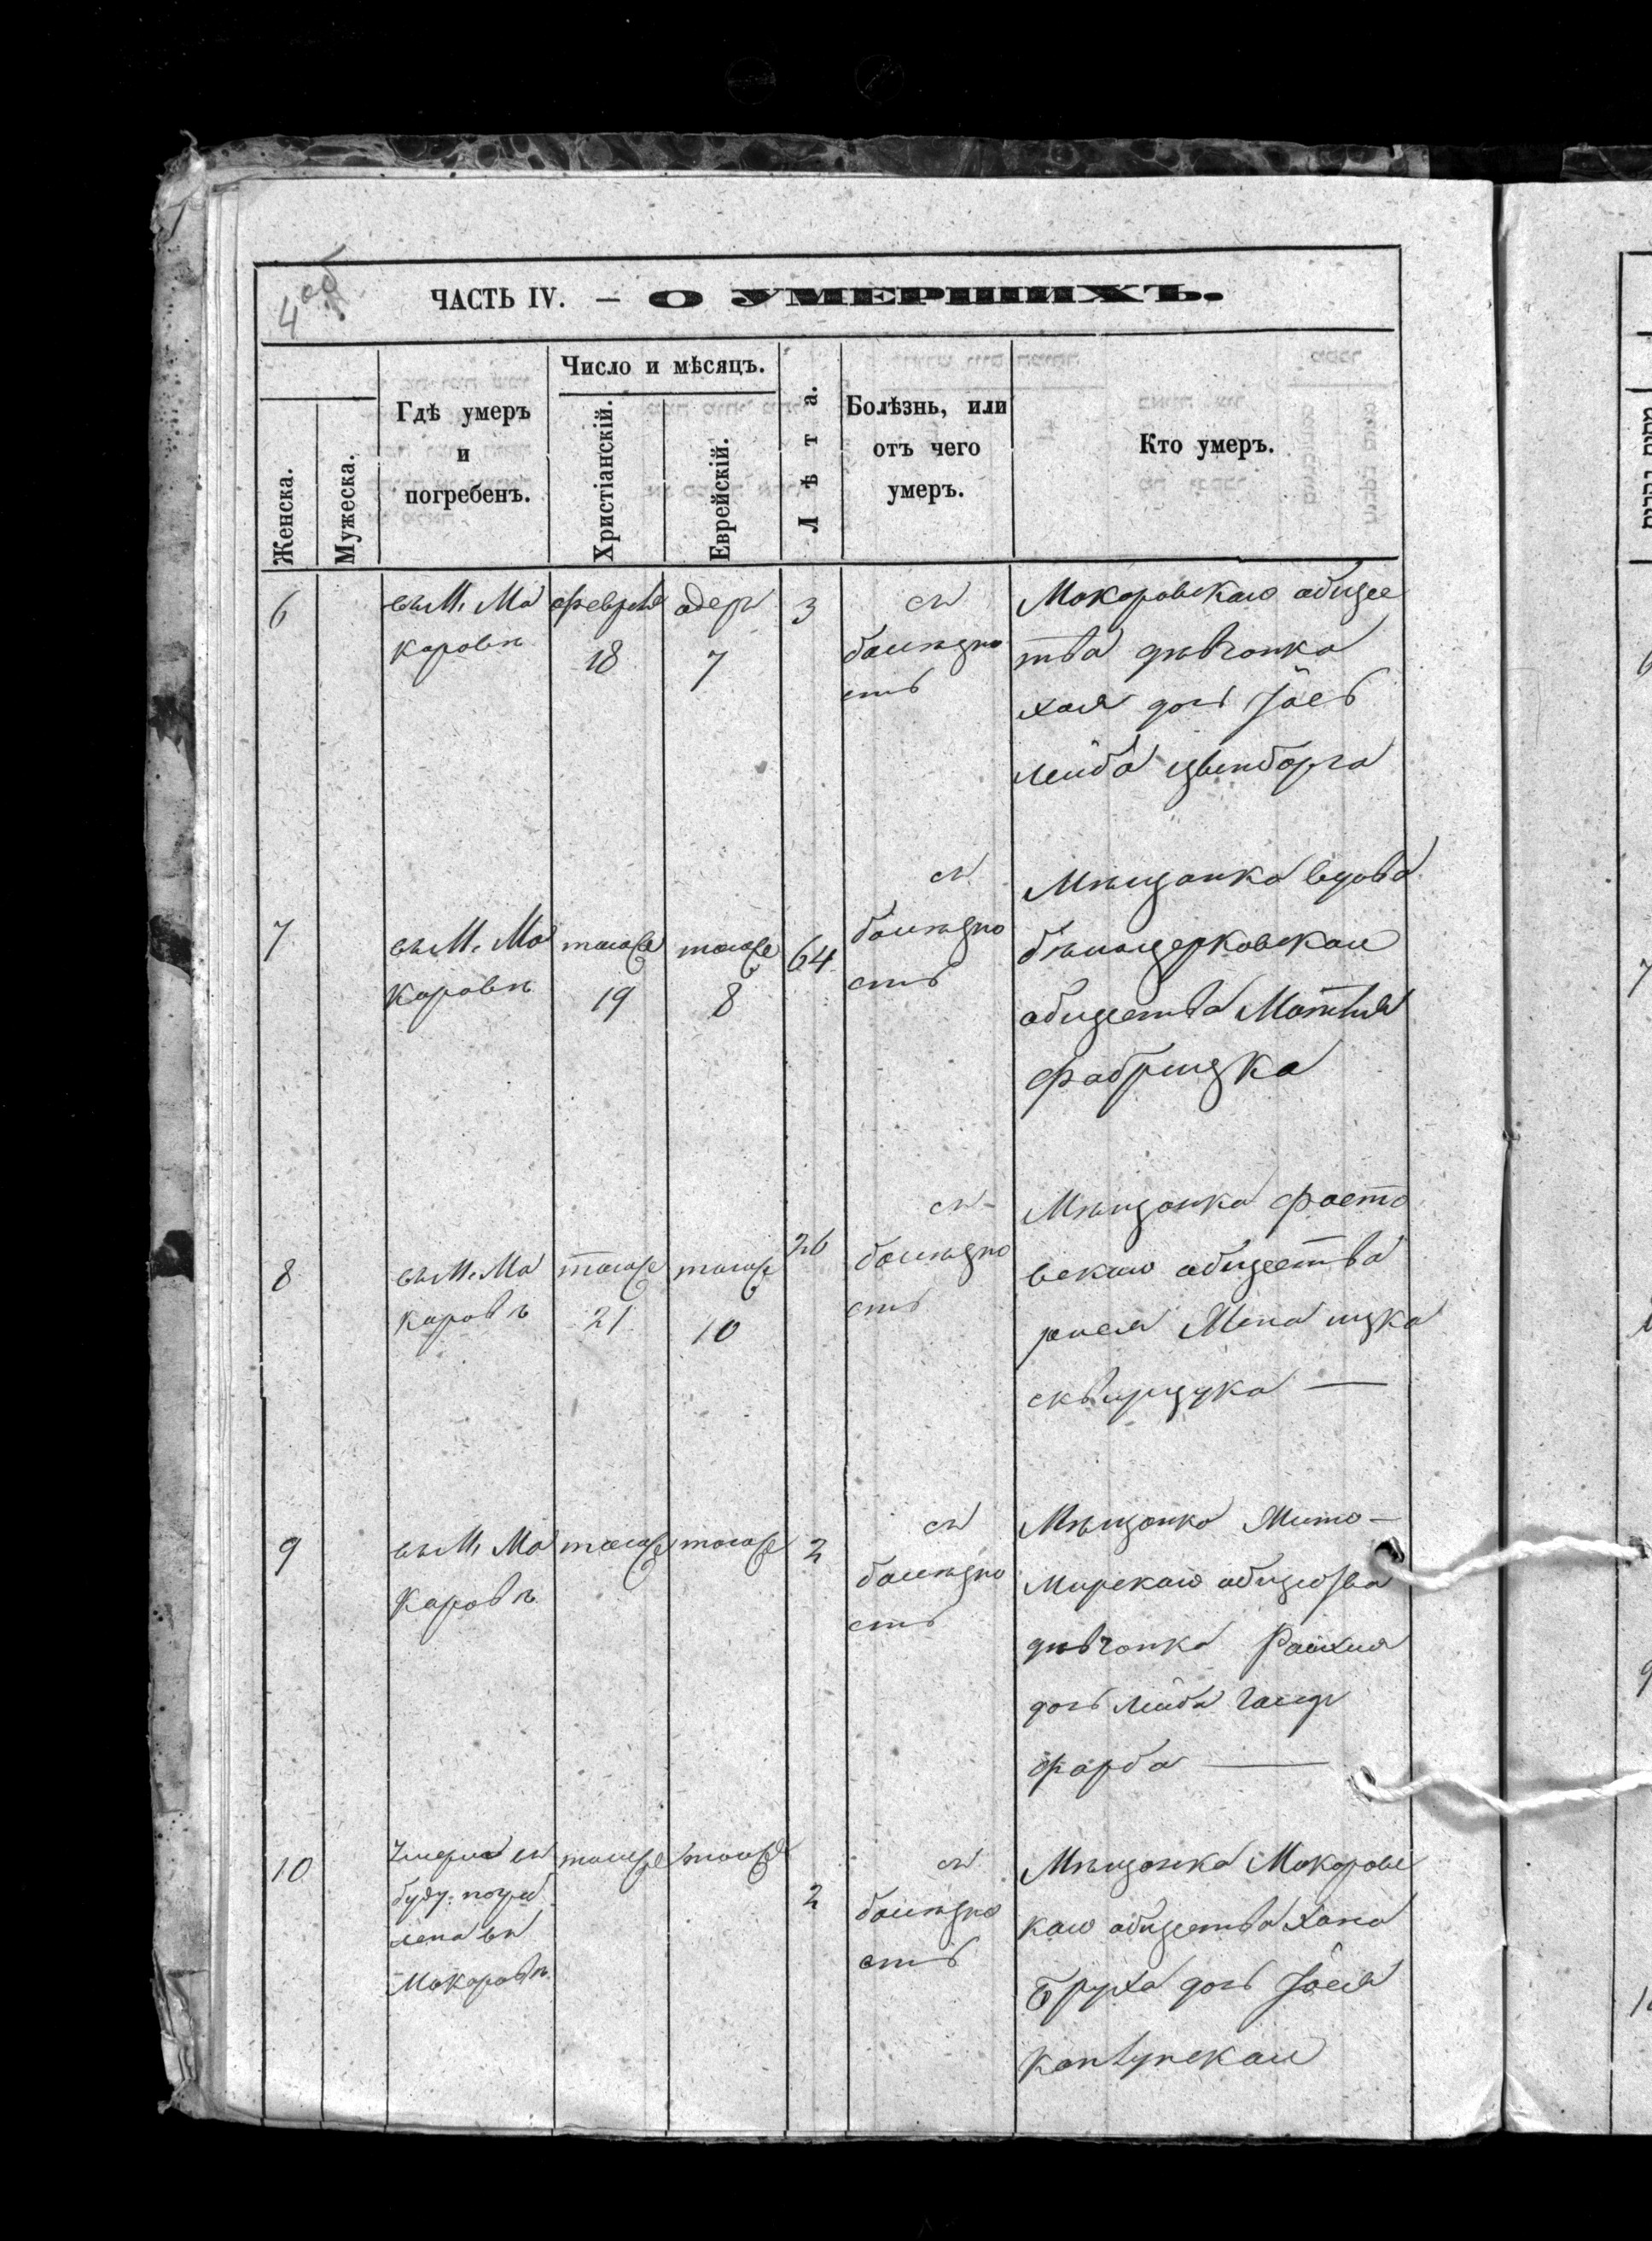 4 об
ЧАСТЬ IV. — О УМЕРШИХЪ.
Женска.
Мужеска.
Гдѣ умеръ
и
погребенъ.
Число и мѣсяцъ.
Христіанскій.
Еврейскій.
Лѣта.
Болѣзнь, или
отъ чего
умеръ.
Кто умеръ.
6
въ М. Ма
каровѣ
февраля
18
адеръ
7
3
съ
болѣзно
сть
Макоровскаго общес
тва дѣвчонка
хая дочь
Лейба цвинборга
7
въ М. Ма
каровѣ
тогоже
19
тогоже
8
64
съ
болѣзно
сть
Мѣщанка вдова
бѣлоцерковскаго
общества
фабрицка
8
въ М. Ма
каровѣ
тогоже
21
тогоже
10
26
съ
болѣзно
сть
Мѣщанка фасто
вскаго общества
сквирцука —
9
въ М. Ма
каровѣ
тогоже
тогоже
2
съ
болѣзно
сть
Мѣщанка Жито-
мирскаго
дѣвчонка
дочь Лейба
фарба —
10
Умерла въ
лена въ
Макоровѣ
тогоже
тогоже
2
съ
болѣзно
сть
Мѣщанка Макоровс
каго общества Хана
Бруха дочь